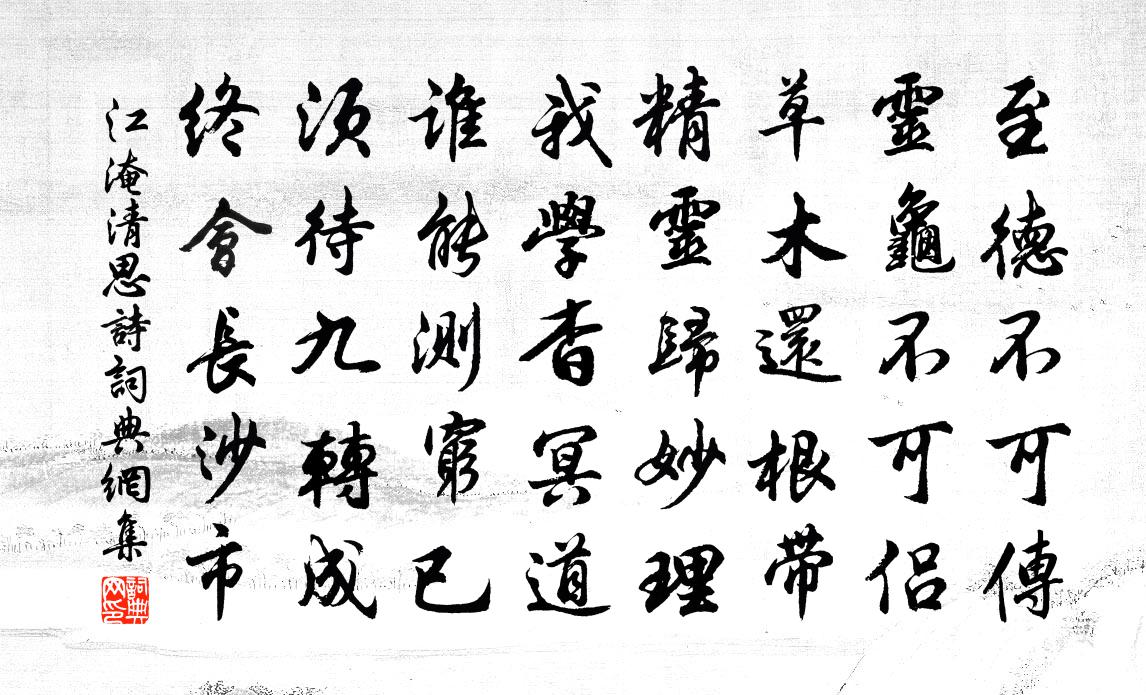 至德不可傳
靈龜不可侣
草木還根帶
精靈歸妙理
我學杳冥道
誰能測窮已
須待九轉成
終會長沙市
江淹清思詩詞典網集
詞典网印